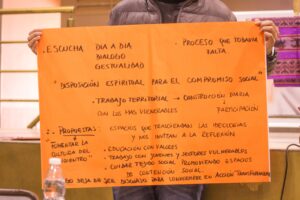 . ESCUCHA DIA A DIA
DIALOGO
GESTUALIDAD
• PROCESO QUE TODAVIA
FALTA.
"DISPOSICIÓN ESPIRITUAL PARA EL COMPROMISO SOCIAL"
• TRABAJO TERRITORIAL → CONSTRUCCIÓN DIARIA
CON LOS MAS VULNERABLES
PARTICIPACIÓN
2. PROPUESTAS:
FOMENTAR LA
CULTURA DEL
ENCUENTRO"
ESPACIOS QUE TRASCIENDAN LAS IDEOLOGIAS
Y NOS INVITAN A LA REFLEXIÓN
• EDUCACIÓN CON VALORES
• TRABAJO CON JOVENES Y SECTORES VULNERABLES
• CUIDAR TEJIDO SOCIAL PROMOVIENDO ESPACIOS
DE CONTENCIÓN SOCIAL.
NO SEA DISCURSO PARA CONVERTIRSE EN ACCIÓN TRANSFORMADORA